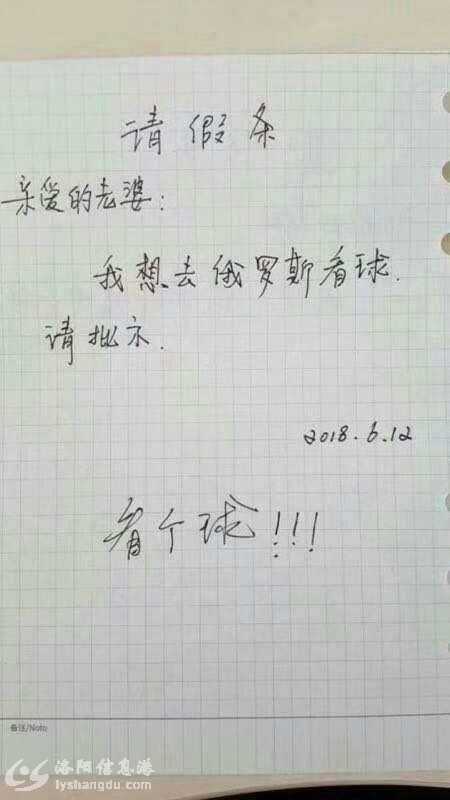 请假条
亲爱的老婆:
我想去俄罗斯看球.
请批示.
2018.6.12
看个球!!!
备注/Note
洛阳信息港
lyshangdu.com